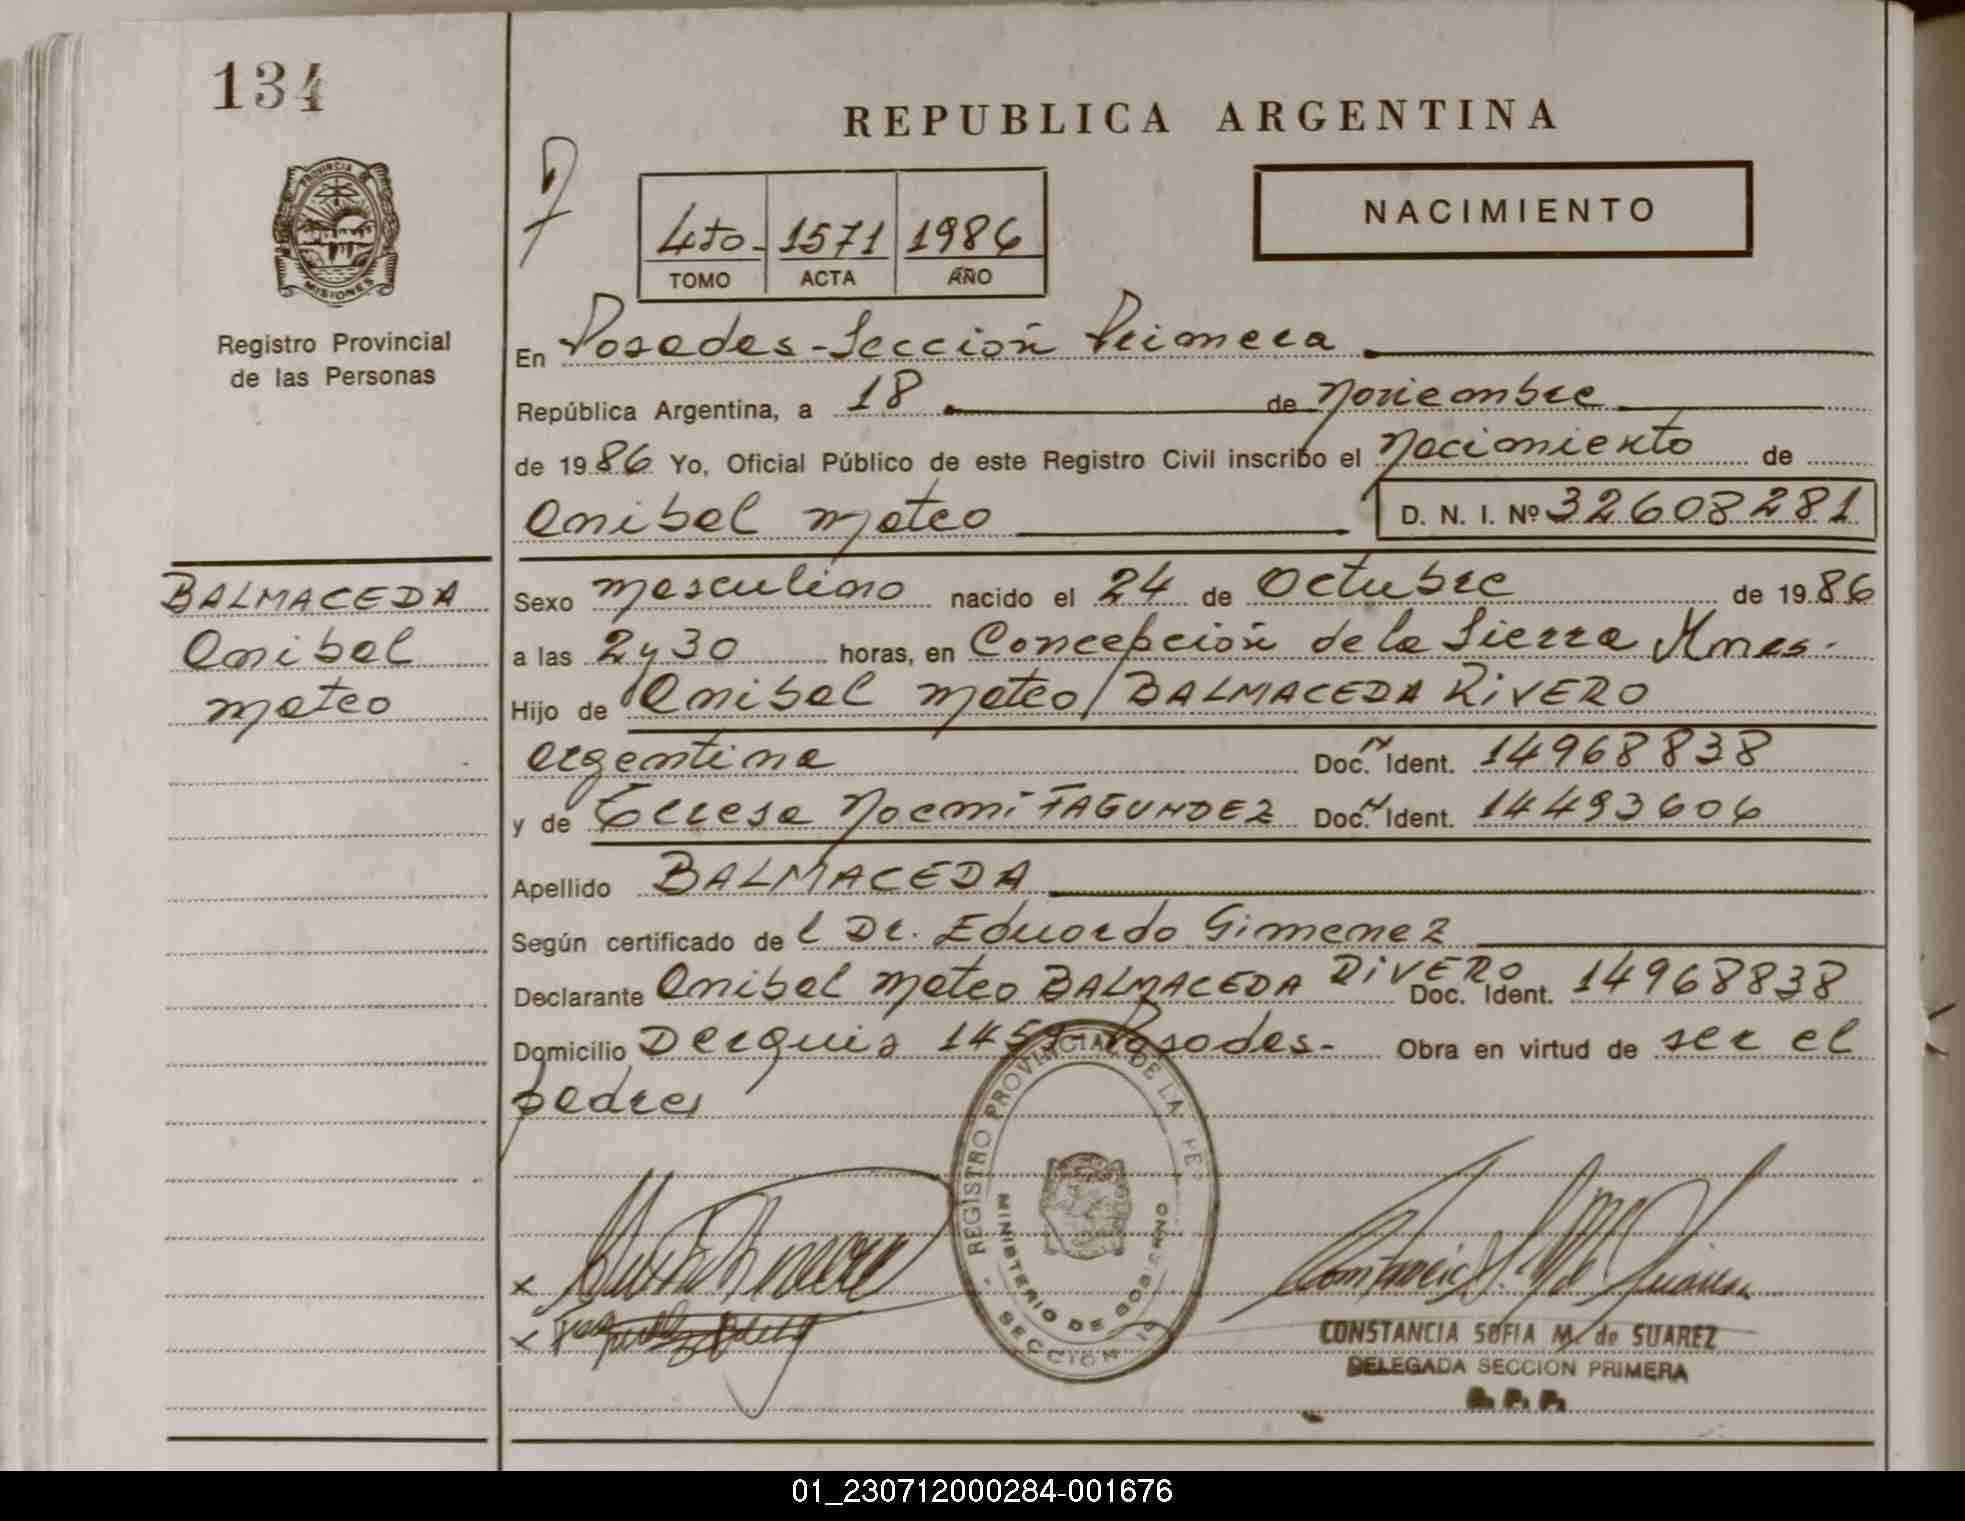 134
REPUBLICA ARGENTINA
PROVINCIA DE
MISIONES
4to- 1571 1986
TOMO ACTA AÑO
NACIMIENTO
Registro Provincial
de las Personas
En Posadas - Sección Primera
República Argentina, a 18 de Noviembre
de 1986 Yo, Oficial Público de este Registro Civil inscribo el Nacimiento de
Anibal Mateo D. N. I. Nº 32608281
BALMACEDA
Anibal
Mateo
Sexo Masculino nacido el 24 de Octubre de 1986
a las 2 y 30 horas, en Concepción de la Sierra Mnes.
Hijo de Anibal Mateo / BALMACEDA RIVERO
argentina Doc. Ident. 14968838
y de Teresa Noemi FAGUNDEZ Doc. Ident. 14493606
Apellido BALMACEDA
Según certificado de l Dr. Eduardo Gimenez
Declarante Anibal Mateo BALMACEDA RIVERO Doc. Ident. 14968838
Domicilio Derquis 1459 - Posadas - Obra en virtud de ser el
padre
REGISTRO PROVINCIAL DE LA PE
MINISTERIO DE GOBIERNO
SECCION 1a
CONSTANCIA SOFIA M. de SUAREZ
DELEGADA SECCION PRIMERA
R. P. P.
01_230712000284-001676